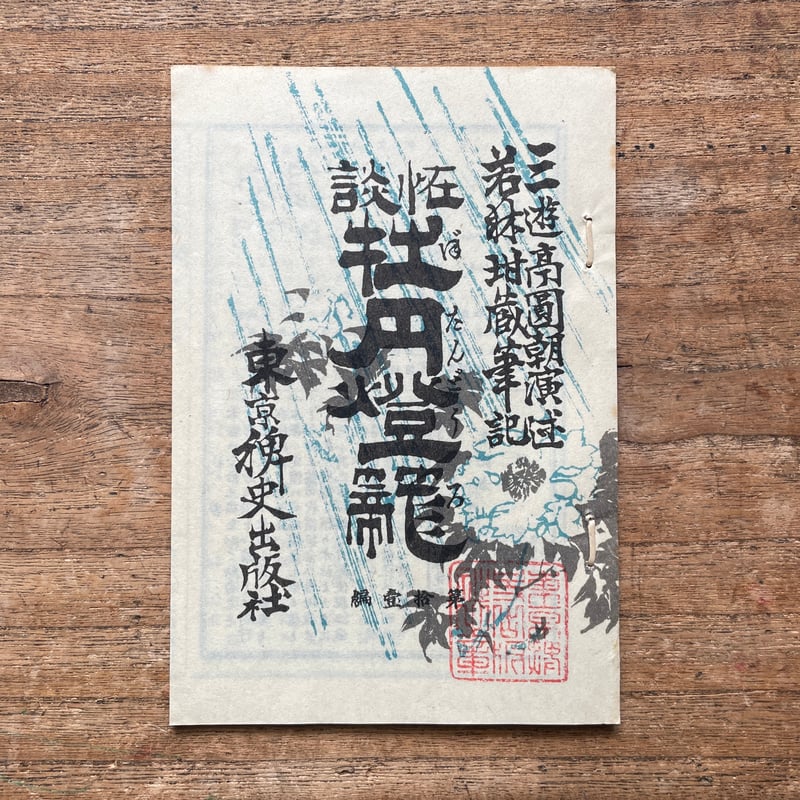 三遊亭圓朝演述
若林玵藏筆記
恠談
牡丹燈籠
ぼたんどうろ
第拾壹編
東京稗史出版社